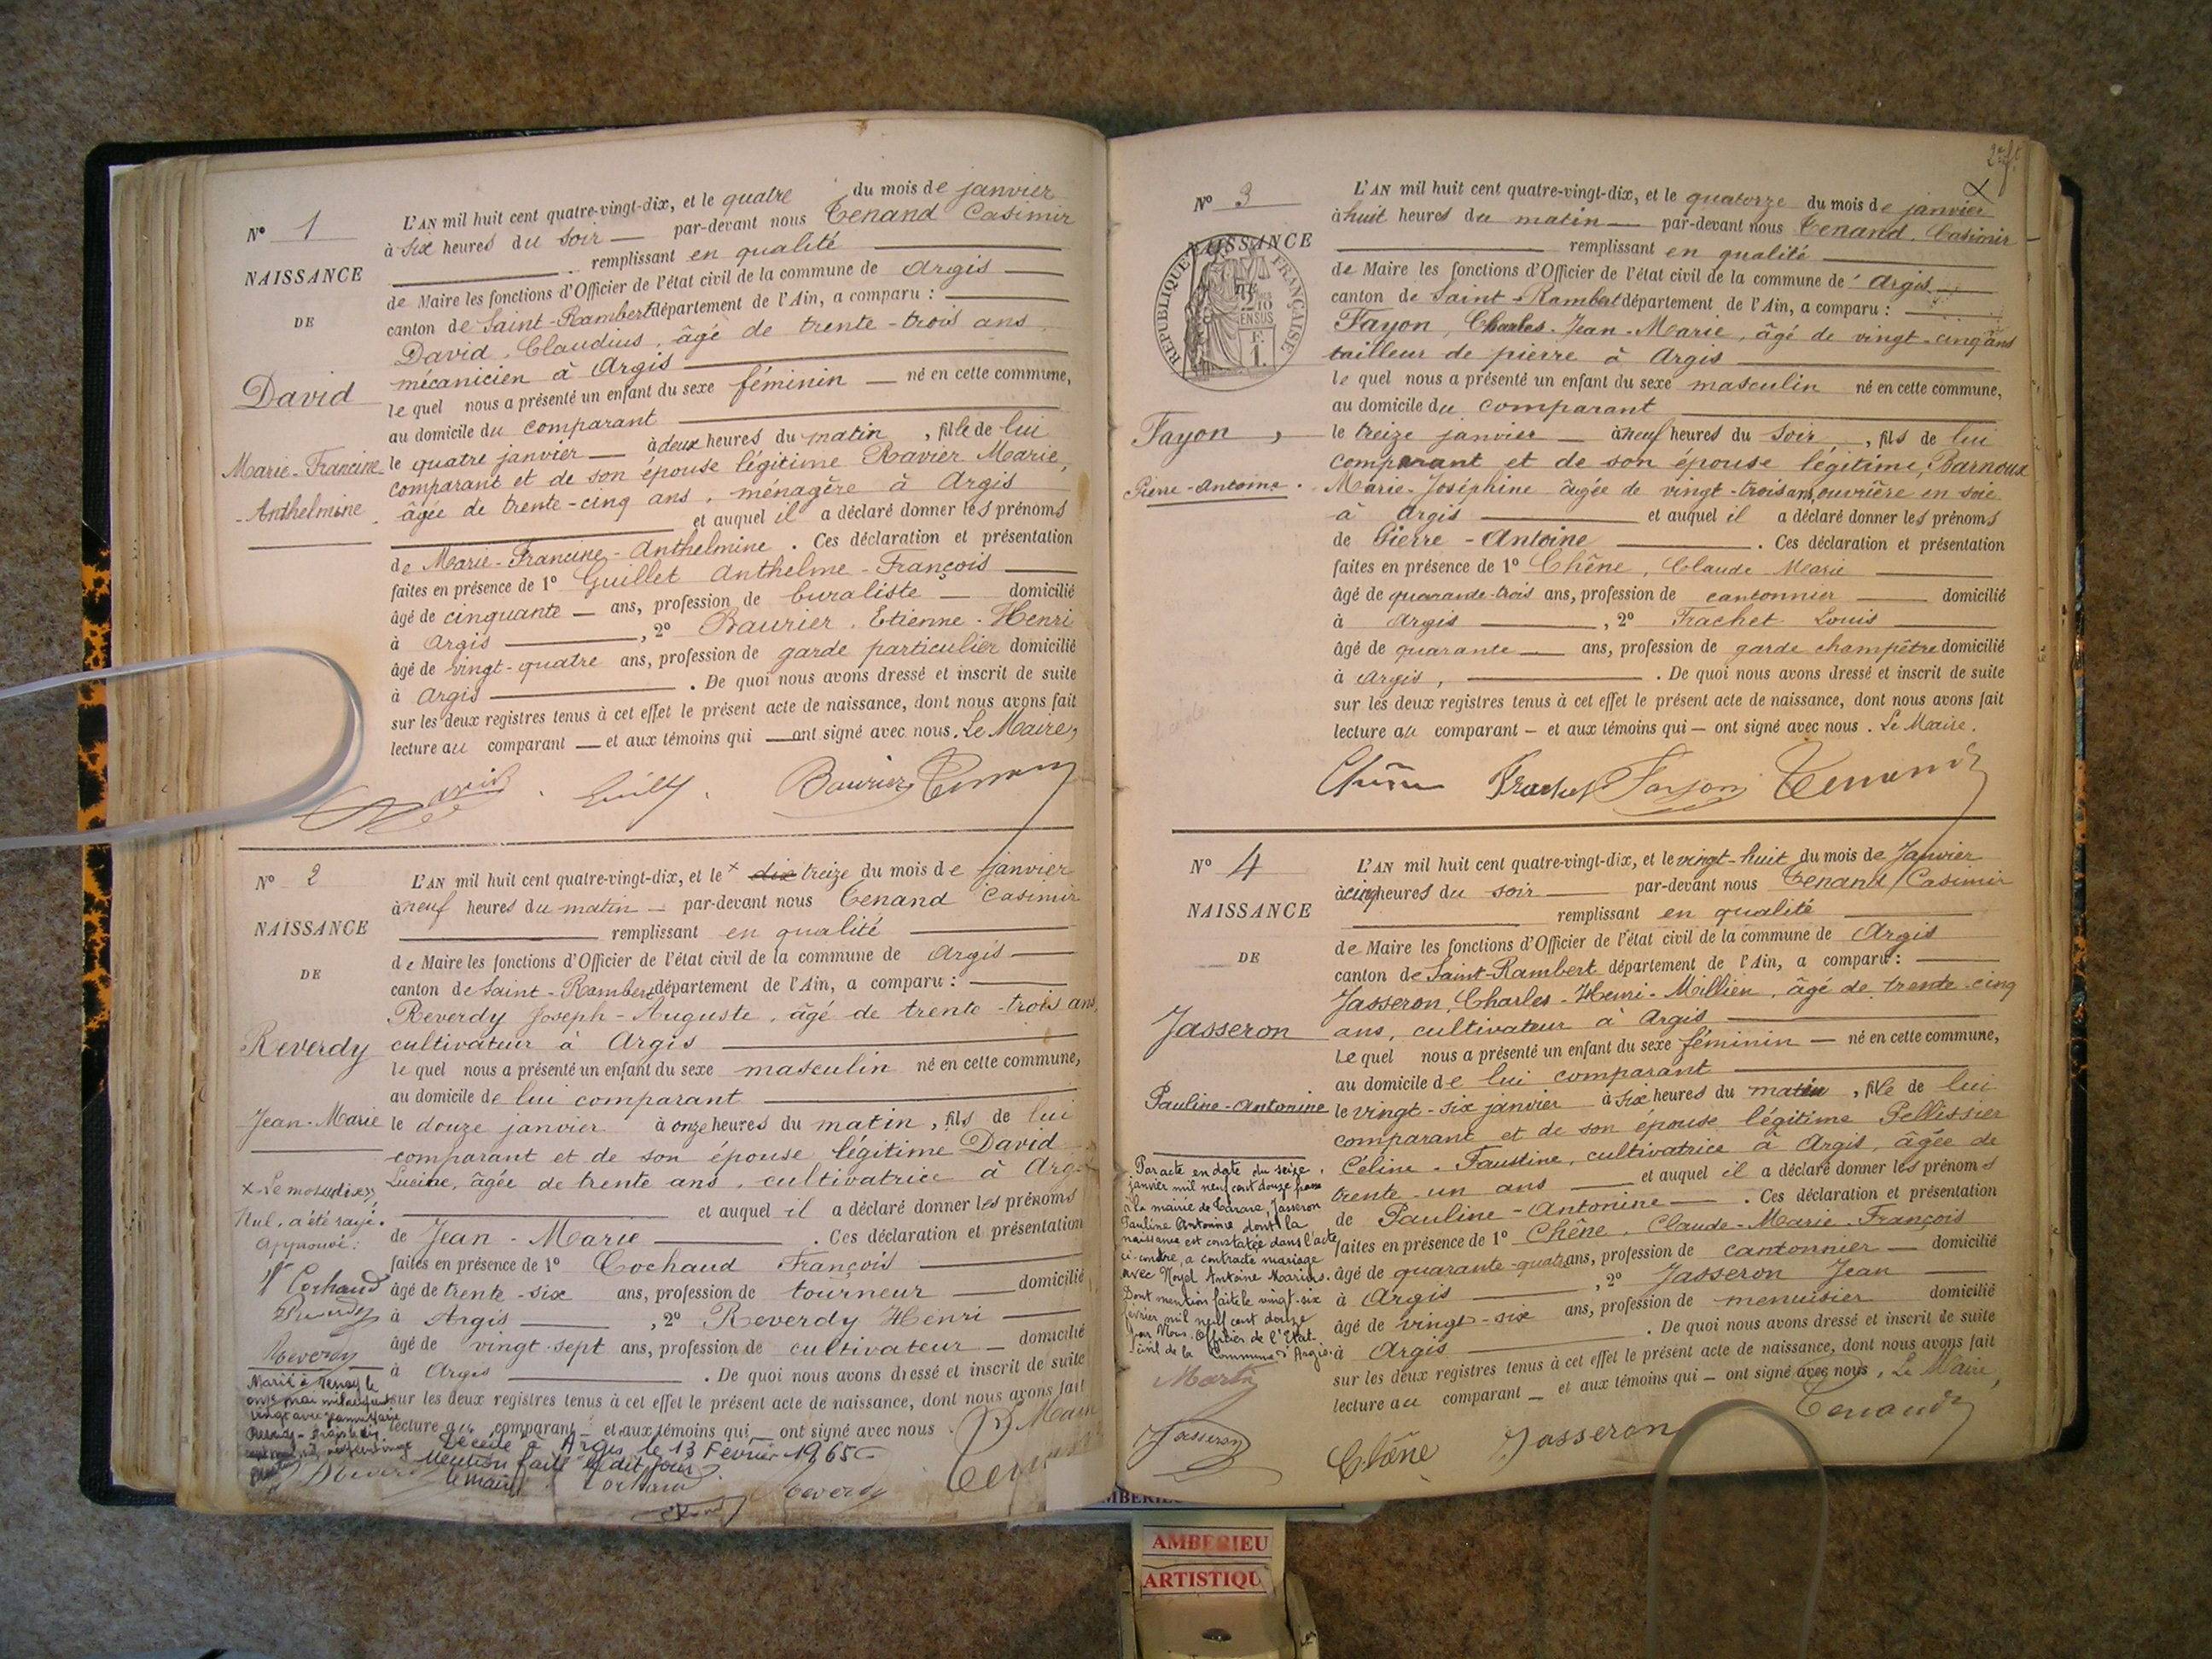 N° 1
NAISSANCE
DE
David
Marie-Francine
-Anthelmine.
L'AN mil huit cent quatre-vingt-dix, et le quatre du mois de janvier
à six heures du soir — par-devant nous Tenand Casimir
remplissant en qualité
de Maire les fonctions d'Officier de l'état civil de la commune de Argis
canton de Saint-Rambert département de l'Ain, a comparu :
David, Claudius, âgé de trente-trois ans
mécanicien à Argis
le quel nous a présenté un enfant du sexe féminin — né en cette commune,
au domicile du comparant
le quatre janvier — à deux heures du matin, fille de lui
comparant et de son épouse légitime Ravier Marie,
âgée de trente-cinq ans, ménagère à Argis
et auquel il a déclaré donner les prénoms
de Marie-Francine-Anthelmine. Ces déclaration et présentation
faites en présence de 1° Guillet Anthelme-François
âgé de cinquante — ans, profession de buraliste — domicilié
à Argis, 2° Baurier, Etienne-Henri
âgé de vingt-quatre ans, profession de garde particulier domicilié
à Argis. De quoi nous avons dressé et inscrit de suite
sur les deux registres tenus à cet effet le présent acte de naissance, dont nous avons fait
lecture au comparant — et aux témoins qui — ont signé avec nous. Le Maire,
Baurier
N° 2
NAISSANCE
DE
Reverdy
Jean-Marie
x Le mot dix,
Nul, a été rayé.
Approuvé :
Cochaud
Reverdy
L'AN mil huit cent quatre-vingt-dix, et le x dix treize du mois de janvier
à neuf heures du matin — par-devant nous Tenand Casimir
remplissant en qualité
de Maire les fonctions d'Officier de l'état civil de la commune de Argis
canton de Saint-Rambert département de l'Ain, a comparu :
Reverdy Joseph-Auguste, âgé de trente-trois ans,
cultivateur à Argis
le quel nous a présenté un enfant du sexe masculin né en cette commune,
au domicile de lui comparant
le douze janvier à onze heures du matin, fils de lui
comparant et de son épouse légitime David
Lucine, âgée de trente ans, cultivatrice à Argis
et auquel il a déclaré donner les prénoms
de Jean-Marie. Ces déclaration et présentation
faites en présence de 1° Cochaud François
âgé de trente-six ans, profession de tourneur — domicilié
à Argis, 2° Reverdy Henri
âgé de vingt-sept ans, profession de cultivateur — domicilié
à Argis. De quoi nous avons dressé et inscrit de suite
sur les deux registres tenus à cet effet le présent acte de naissance, dont nous avons fait
lecture au comparant — et aux témoins qui — ont signé avec nous
Marié à Tenay le
onze mai mil neuf cent
vingt avec Jeanne Marie
Décédé à Argis le 13 Février 1965
Mention faite le dit jour
Le maire
Reverdy
N° 3
NAISSANCE
RÉPUBLIQUE FRANÇAISE
Fayon,
Pierre-Antoine.
L'AN mil huit cent quatre-vingt-dix, et le quatorze du mois de janvier
à huit heures du matin — par-devant nous Tenand, Casimir
remplissant en qualité
de Maire les fonctions d'Officier de l'état civil de la commune de Argis
canton de Saint-Rambert département de l'Ain, a comparu :
Fayon, Charles-Jean-Marie, âgé de vingt-cinq ans
tailleur de pierre à Argis
le quel nous a présenté un enfant du sexe masculin né en cette commune,
au domicile du comparant
le treize janvier — à neuf heures du soir, fils de lui
comparant et de son épouse légitime, Barnoux
Marie-Joséphine âgée de vingt-trois ans, ouvrière en soie
à Argis et auquel il a déclaré donner les prénoms
de Pierre-Antoine. Ces déclaration et présentation
faites en présence de 1° Chêne, Claude Marie
âgé de quarante-trois ans, profession de cantonnier — domicilié
à Argis, 2° Trachet Louis
âgé de quarante — ans, profession de garde champêtre domicilié
à Argis, . De quoi nous avons dressé et inscrit de suite
sur les deux registres tenus à cet effet le présent acte de naissance, dont nous avons fait
lecture au comparant — et aux témoins qui — ont signé avec nous. Le Maire.
Chêne Trachet Fayon Tenand
N° 4
NAISSANCE
DE
Jasseron
Pauline-Antonine
Par acte en date du seize
janvier mil neuf cent douze passé
à la mairie de Tarare, Jasseron
Pauline Antonine dont la
naissance est constatée dans l'acte
ci-contre, a contracté mariage
avec Noyel Antoine Marius.
Dont mention faite le vingt-six
février mil neuf cent douze
par Nous Officier de l'Etat-
civil de la Commune d'Argis.
Jasseron
L'AN mil huit cent quatre-vingt-dix, et le vingt-huit du mois de Janvier
à cinq heures du soir — par-devant nous Tenand Casimir
remplissant en qualité
de Maire les fonctions d'Officier de l'état civil de la commune de Argis
canton de Saint-Rambert département de l'Ain, a comparu :
Jasseron, Charles-Henri-Millien, âgé de trente-cinq
ans, cultivateur à Argis
le quel nous a présenté un enfant du sexe féminin — né en cette commune,
au domicile de lui comparant
le vingt-six janvier à six heures du matin, fille de lui
comparant et de son épouse légitime Pellissier
Céline-Faustine, cultivatrice à Argis, âgée de
trente-un ans — et auquel il a déclaré donner les prénoms
de Pauline-Antonine. Ces déclaration et présentation
faites en présence de 1° Chêne, Claude-Marie-François
âgé de quarante-quatre ans, profession de cantonnier — domicilié
à Argis, 2° Jasseron Jean
âgé de vingt-six ans, profession de menuisier domicilié
à Argis. De quoi nous avons dressé et inscrit de suite
sur les deux registres tenus à cet effet le présent acte de naissance, dont nous avons fait
lecture au comparant — et aux témoins qui — ont signé avec nous, Le Maire,
Chêne Jasseron Tenand
AMBERIEU
ARTISTIQU